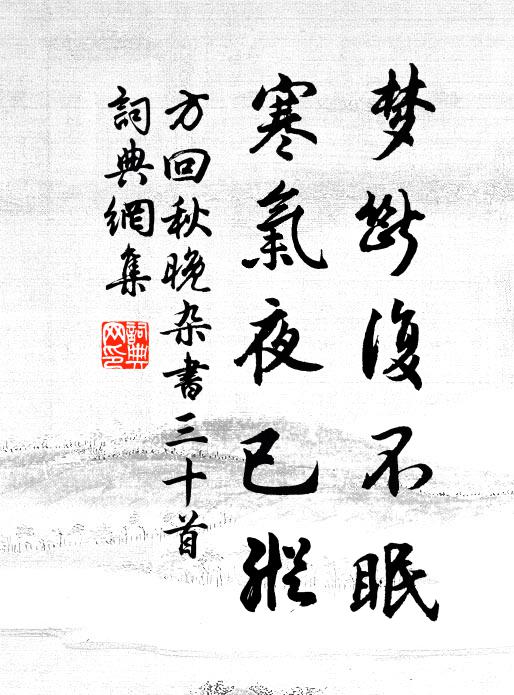 梦断復不眠
寒氣夜已縱
方回秋晚杂書三十首
詞典網集
詞典网印